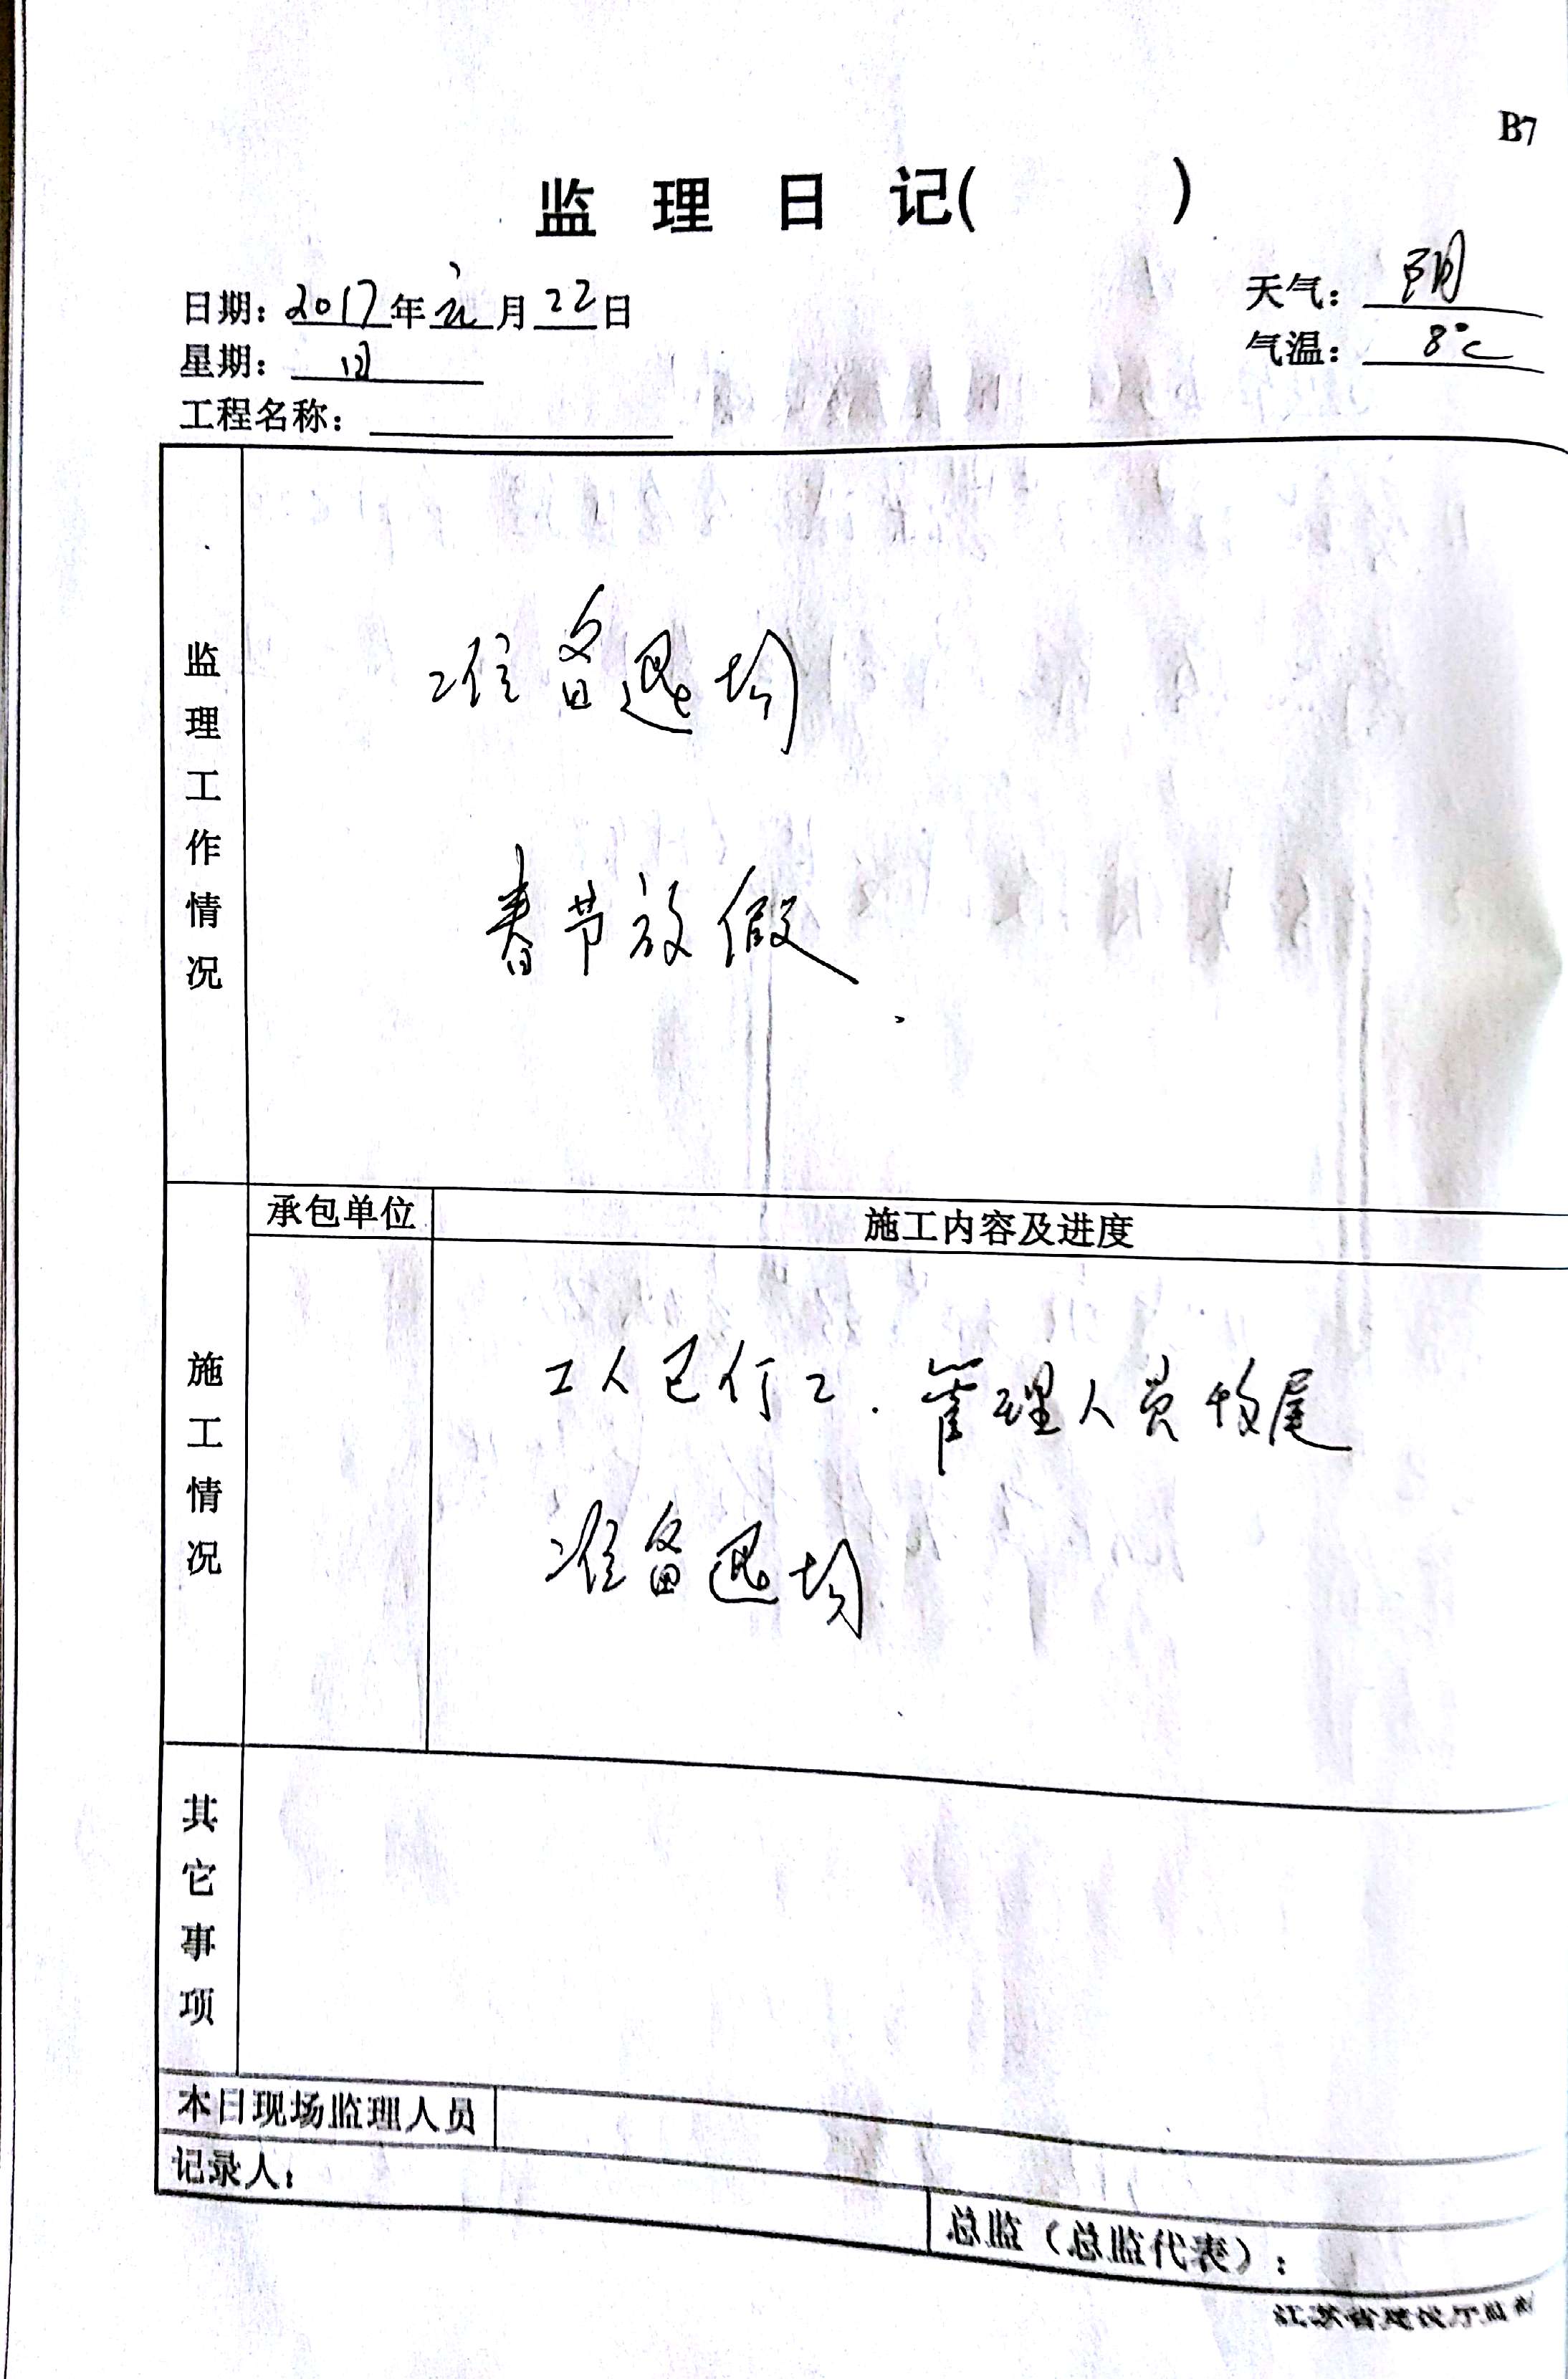 B7
监理日记( )
日期：2017年元月22日
天气：阴
星期：日
气温：8℃
工程名称：
监理工作情况
准备退场
春节放假
承包单位
施工内容及进度
施工情况
工人已停工．管理人员收尾
准备退场
其它事项
本日现场监理人员
记录人：
总监（总监代表）：
江苏省建设厅监制